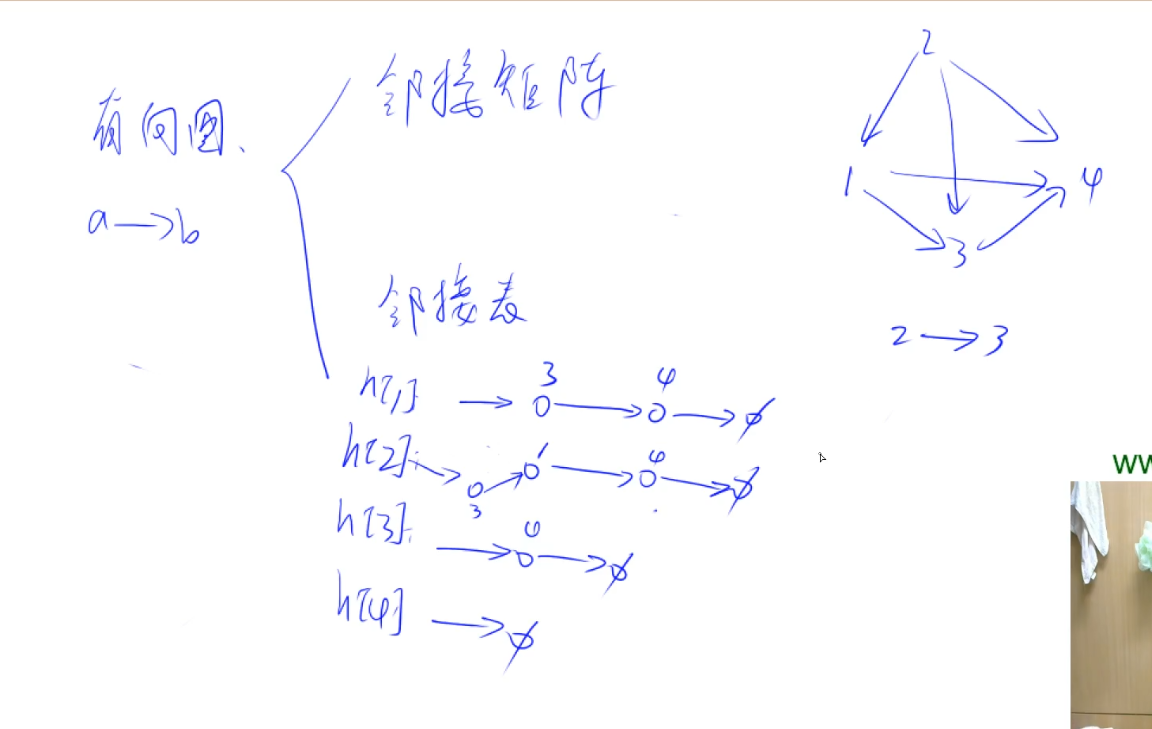 有向图、
a→b
邻接矩阵
邻接表
h[1] → 3 → 4 → ∅
h[2]: → 3 → 1 → 4 → ∅
h[3]: → 4 → ∅
h[4] → ∅
2
1 4
3
2→3